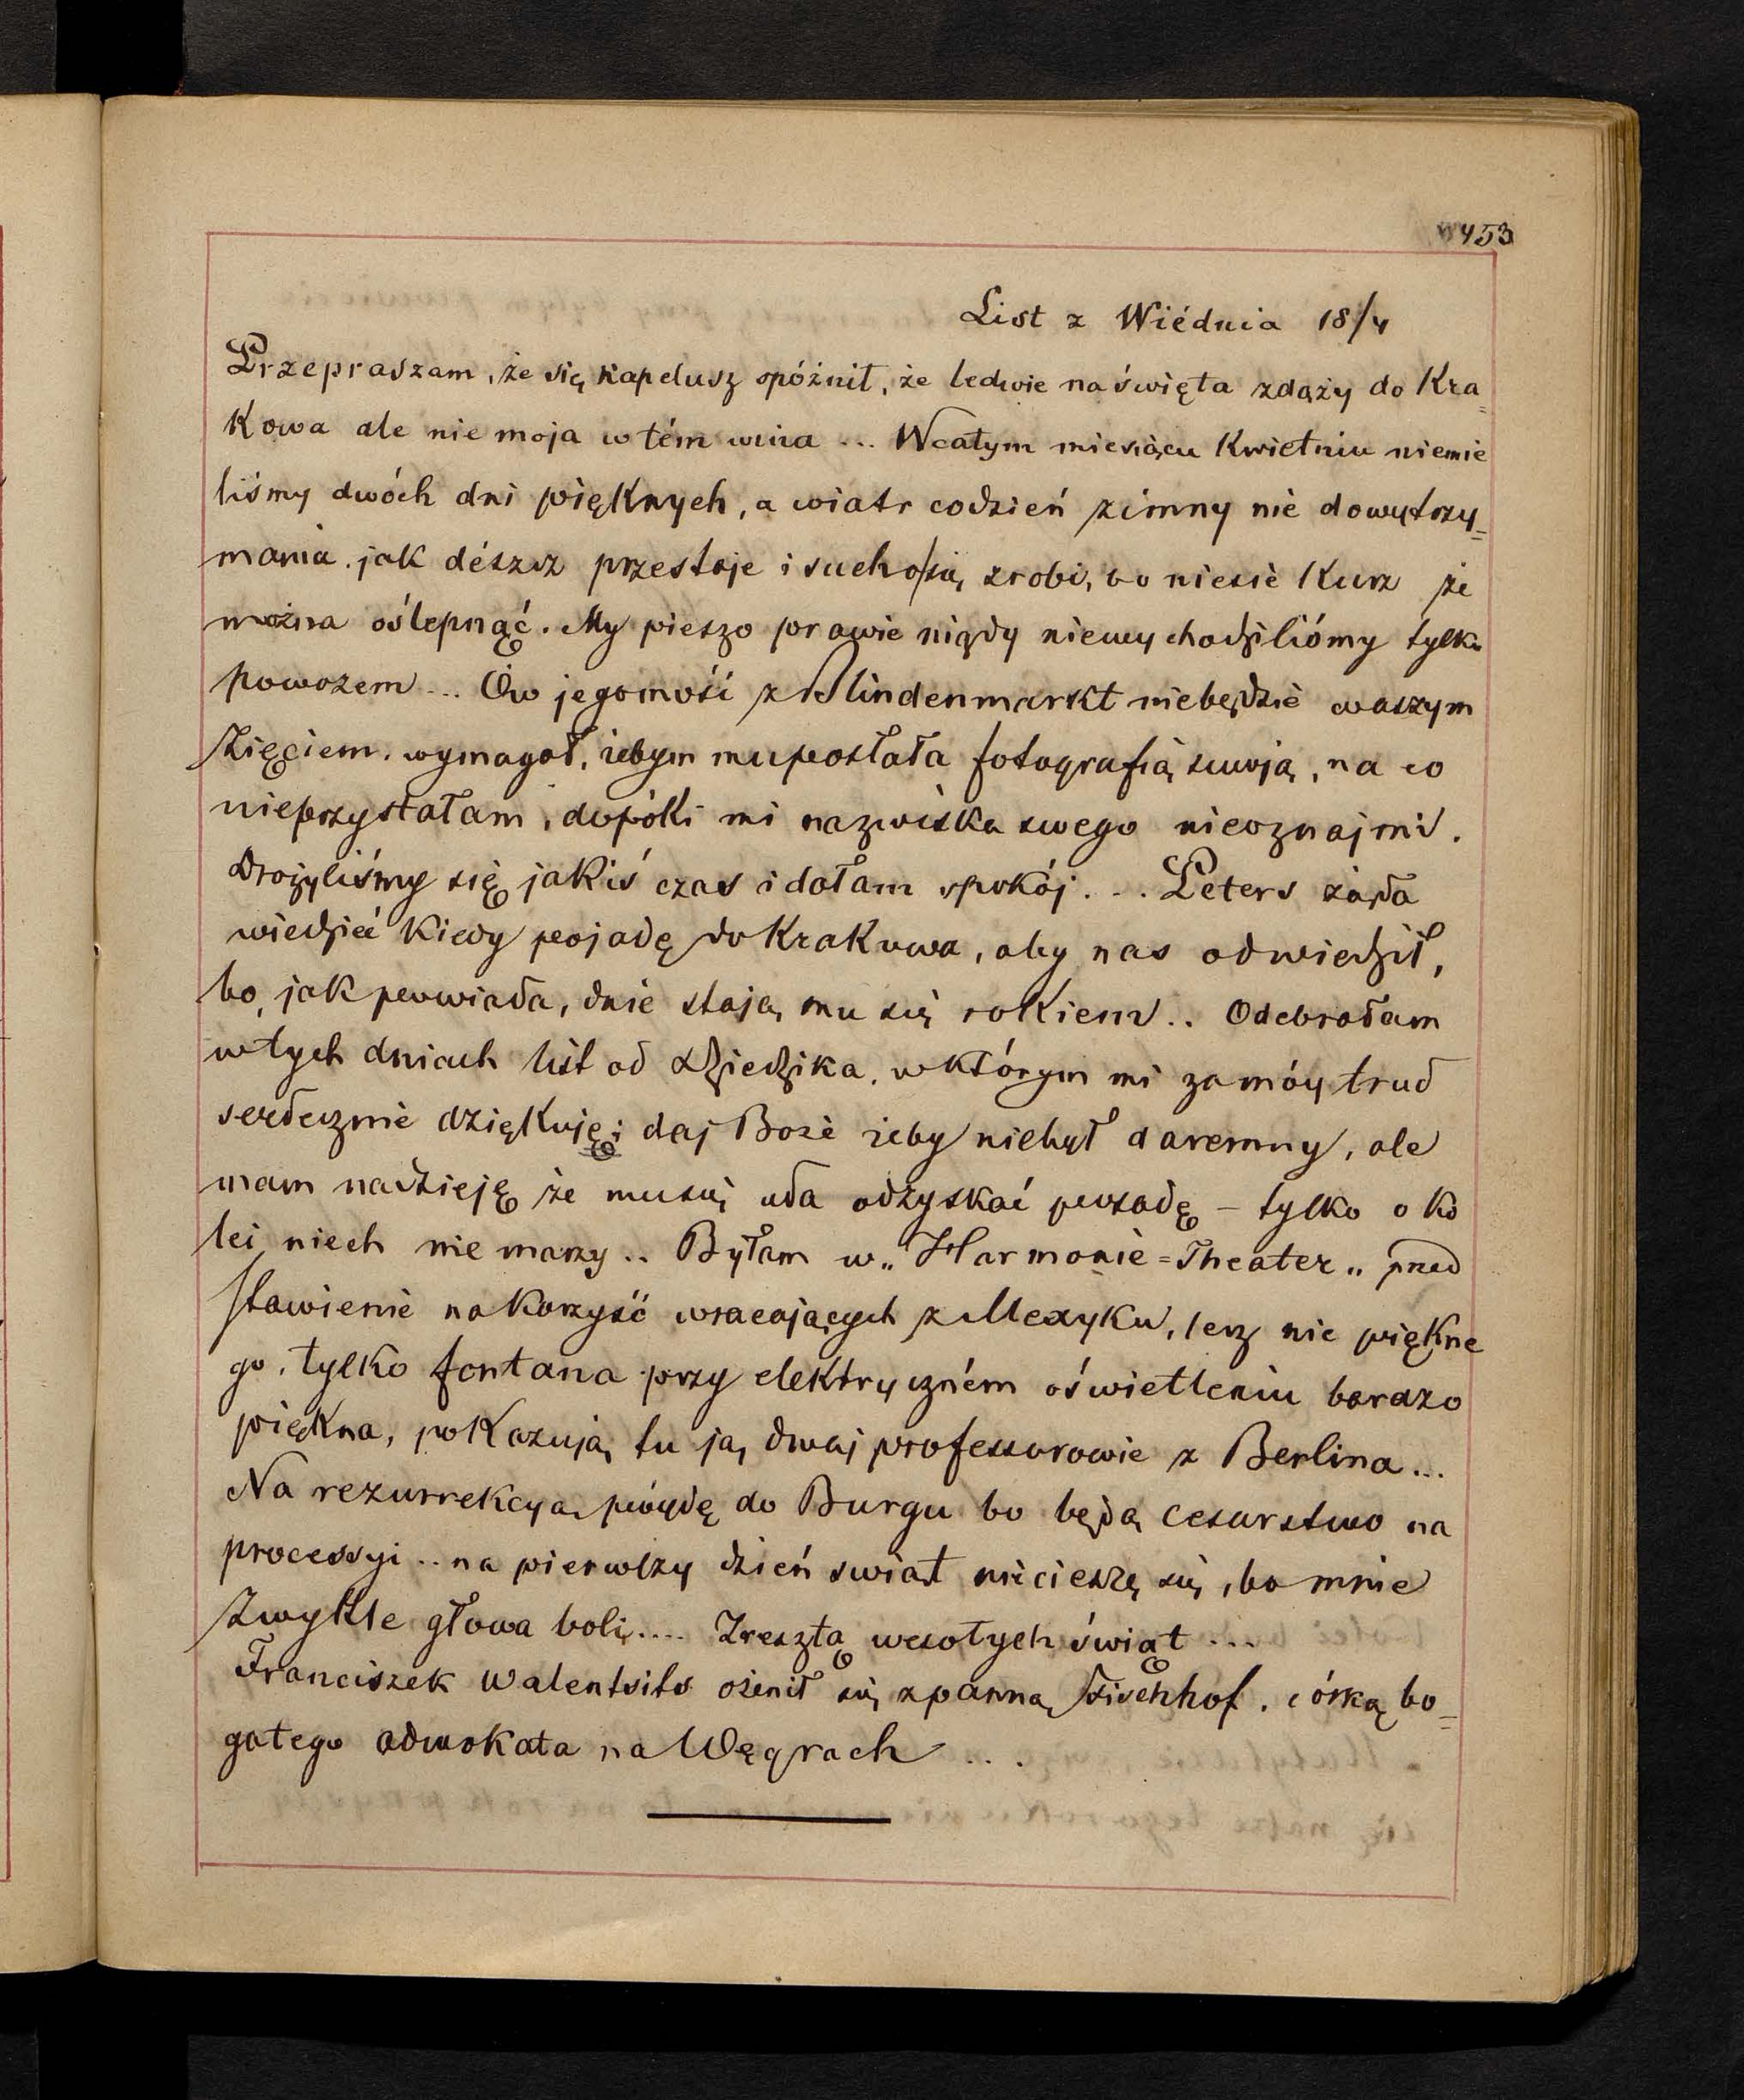 453
List z Wiédnia 18/4
Przepraszam, że się kapelusz spóźnił, że ledwie na święta zdąży do Kra=
kowa ale nie moja w tém wina ... W całym miesiącu Kwietniu niemie
liśmy dwóch dni pięknych, a wiatr codzień zimny nie dowytrzy=
mania. jak dészcz przestaje i sucho się zrobi, to niesie kurz że
można oślepnąć. My pieszo prawie nigdy niewychodziliśmy tylko
powozem ... Ów jegomość z Blindenmarkt niebędzie waszym
Zięciem. wymagał, żebym mu posłała fotografią swoją, na co
nieprzystałam, dopóki mi nazwiska swego nieoznajmi.
Drożyliśmy się jakiś czas i dałam spokój. .. Peters żąda
wiedzieć kiedy pojadę do Krakowa, aby nas odwiedził,
bo, jak powiada, dnie stają mu się rokiem .. Odebrałam
w tych dniach list od Dziedzika, w którym mi za móy trud
serdecznie dziękuję; daj Boże żeby niebył daremny, ale
mam nadzieję że mu się uda odzyskać posadę - tylko o ko
lei niech nie marzy .. Byłam w „Harmonie=Theater„ przed
stawienie na korzyść wracających z Mexyku, lecz nic piękne
go, tylko fontana przy elektryczném oświetleniu bardzo
piękna, pokazują tu ją dwaj professorowie z Berlina ...
Na rezurrekcyą póydę do Burgu bo będą cesarstwo na
processyi .. na pierwszy dzień swiąt nie cieszę się, bo mnie
Zwykle głowa boli .... Zresztą wesołych świąt ...
Franciszek Walentsits ożenił się z panną Fischhof, córką bo=
gatego adwokata na Węgrach ...